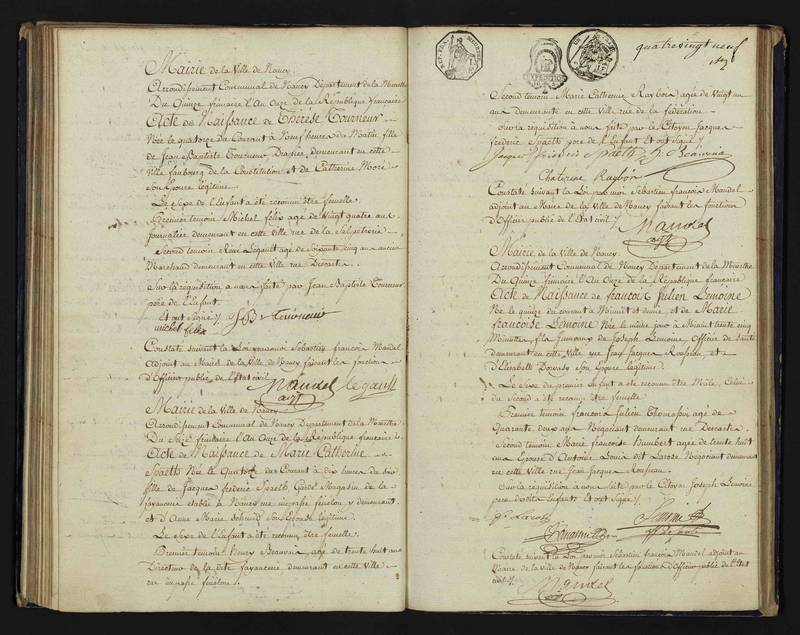 Mairie de la Ville de Nancy
Arrondissement Communal de Nancy Département de la Meurthe
Du Quinze frimaire l'An Onze de la République française
Acte de Naissance de Thérèse Tourneur
Née le quatorze du Courant à Neuf heures du Matin fille
de Jean Baptiste Tourneur Drapier, demeurant en cette
Ville faubourg de la Constitution et de Catherine
Son Epouse légitime.
Le Sexe de l'Enfant a été reconnu être femelle.
Premier témoin Michel felix agé de Vingt quatre ans
journalier demeurant en cette Ville rue de la Salpétrerie
Second témoin Legault agé de Soixante cinq ans ancien
Marchand demeurant en cette Ville rue Descartes.
Sur la réquisition a nous faite par Jean Baptiste Tourneur
père de l'Enfant.
Et ont Signé
J B Tourneur
michel felix
Constaté suivant la Loi par moi Sébastien françois Mandel
Adjoint au Maire de la Ville de Nancy faisant les fonctions
d'Officier public de l'Etat civil
Mandel legault
adjt
Mairie de la Ville de Nancy
Arrondissement Communal de Nancy Département de la Meurthe
Du Seize frimaire l'An Onze de la République française
Acte de Naissance de Marie Catherine
Spaëth Née le Quatorze du Courant à dix heures du soir
fille de Jacques frédéric Spaëth, Garde Magasin de la
fayancerie établie à Nancy impasse fénélon y demeurant
et d'Anne Marie Schmid Son Epouse légitime.
Le Sexe de l'Enfant a été reconnu être femelle.
Premier témoin Henry Beauvain, agé de trente huit ans
Directeur de la dite fayancerie demeurant en cette Ville
impasse fénélon.
quatre vingt neuf
Second témoin Marie Catherine Raybois agée de Vingt un
ans demeurante en cette Ville rue de la fédération.
Sur la réquisition a nous faite par le Citoyen Jacques
frédéric Spaëth père de l'Enfant Et ont Signé
Jacques Spaeth h. Beauvain
Constaté suivant la Loi par moi Sébastien françois Mandel
adjoint au Maire de la Ville de Nancy faisant les fonctions
d'Officier public de l'Etat civil
Mandel
adjt
Mairie de la Ville de Nancy
Arrondissement Communal de Nancy Département de la Meurthe
Du Quinze frimaire l'An Onze de la République française
Acte de Naissance de françois Julien Lemoine
Né le quinze du courant à Minuit et demie, et de Marie
françoise Lemoine Née le même jour à Minuit trente cinq
Minutes, fils Jumeaux de Joseph Lemoine, Officier de Santé
demeurant en cette Ville rue Jean Jacques Rousseau, et
d'Elisabeth Son Epouse légitime.
Le Sexe du premier enfant a été reconnu être Mâle, Celui
du Second a été reconnu être femelle
Premier témoin françois Julien Thomassin agé de
Quarante deux ans Négociant demeurant rue Descartes.
Second témoin Marie françoise Humbert agée de trente huit
ans Epouse d'Antoine Louis dit Laroze Négociant demeurant
en cette Ville rue Jean Jacques Rousseau.
Sur la réquisition a nous faite par le Citoyen Joseph Lemoine
père desdits Enfants Et ont Signé
Constaté suivant la Loi par moi Sébastien françois Mandel adjoint au
Maire de la Ville de Nancy faisant les fonctions d'Officier public de l'Etat
civil
Mandel
adjt